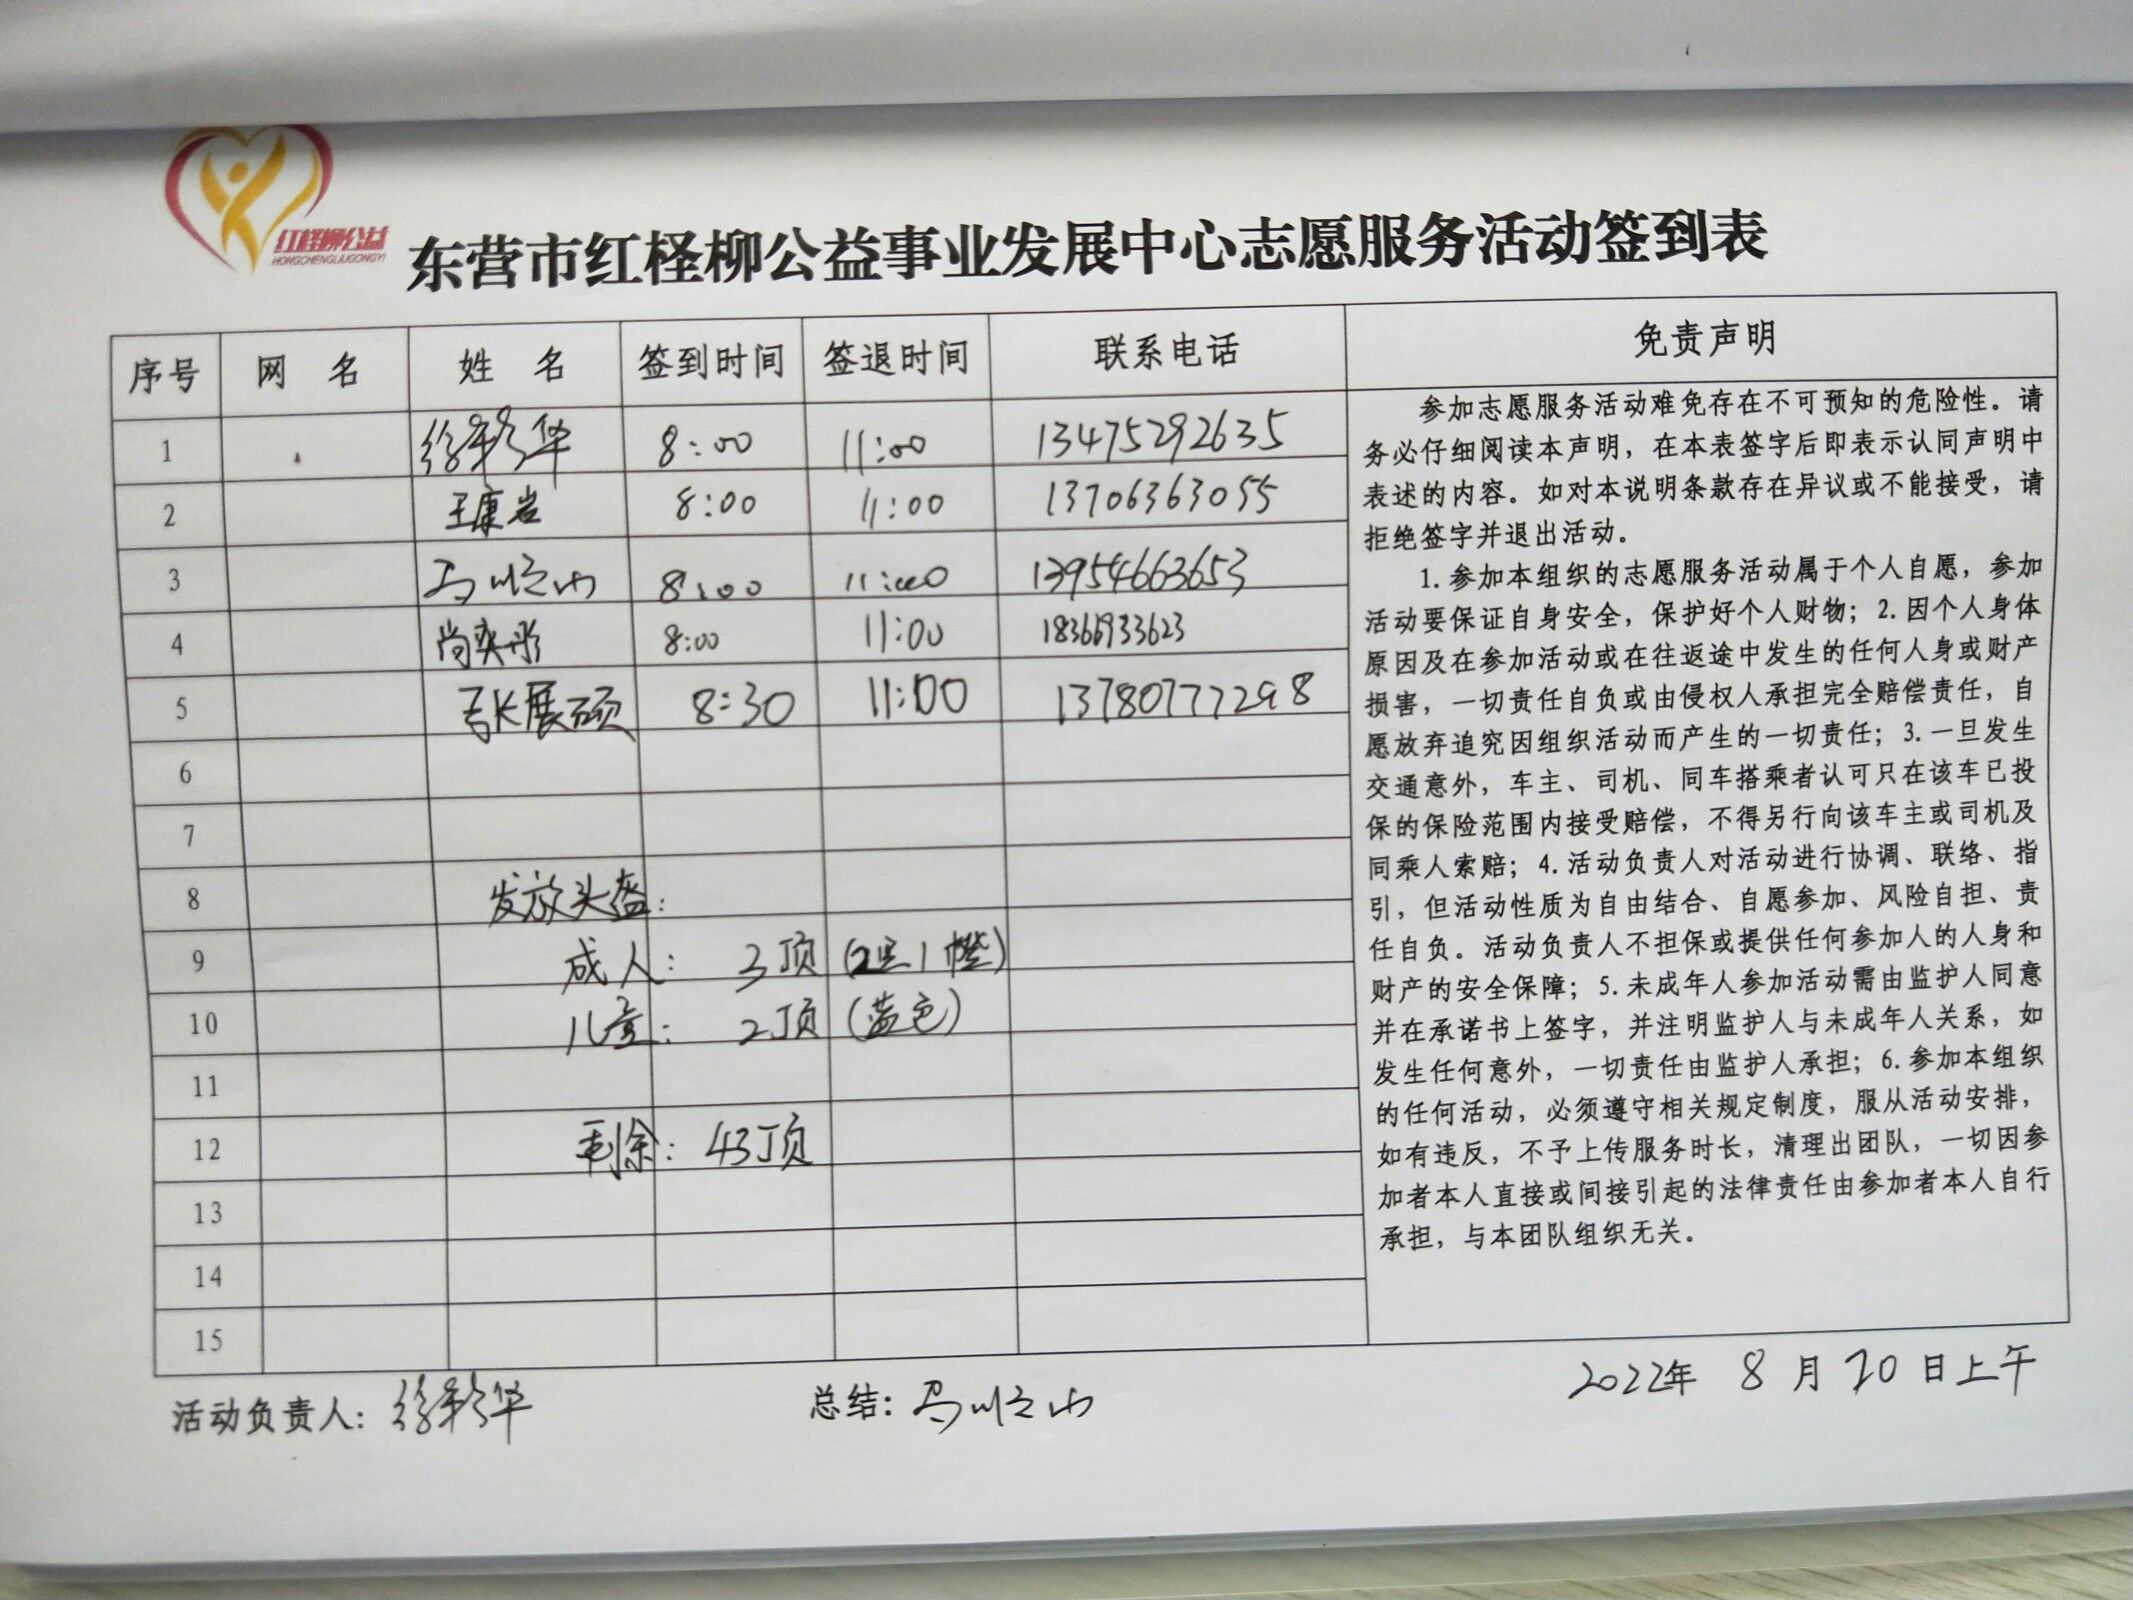 红柽柳公益
HONGCHENGLIUGONGYI
东营市红柽柳公益事业发展中心志愿服务活动签到表
序号 网 名 姓 名 签到时间 签退时间 联系电话 免责声明
1 徐彩华 8:00 11:00 13475292635
2 王康岩 8:00 11:00 13706363055
3 马顺山 8:00 11:00 13954663653
4 尚奕彤 8:00 11:00 18366933623
5 展硕 8:30 11:00 13780777298
6
7
8 发放头盔:
9 成人: 3顶
10 儿童: 2顶(蓝色)
11
12 剩余: 43顶
13
14
15
参加志愿服务活动难免存在不可预知的危险性。请
务必仔细阅读本声明,在本表签字后即表示认同声明中
表述的内容。如对本说明条款存在异议或不能接受,请
拒绝签字并退出活动。
1.参加本组织的志愿服务活动属于个人自愿,参加
活动要保证自身安全,保护好个人财物;2.因个人身体
原因及在参加活动或在往返途中发生的任何人身或财产
损害,一切责任自负或由侵权人承担完全赔偿责任,自
愿放弃追究因组织活动而产生的一切责任;3.一旦发生
交通意外,车主、司机、同车搭乘者认可只在该车已投
保的保险范围内接受赔偿,不得另行向该车主或司机及
同乘人索赔;4.活动负责人对活动进行协调、联络、指
引,但活动性质为自由结合、自愿参加、风险自担、责
任自负。活动负责人不担保或提供任何参加人的人身和
财产的安全保障;5.未成年人参加活动需由监护人同意
并在承诺书上签字,并注明监护人与未成年人关系,如
发生任何意外,一切责任由监护人承担;6.参加本组织
的任何活动,必须遵守相关规定制度,服从活动安排,
如有违反,不予上传服务时长,清理出团队,一切因参
加者本人直接或间接引起的法律责任由参加者本人自行
承担,与本团队组织无关。
活动负责人:徐彩华 总结:马顺山 2022年 8月20日上午